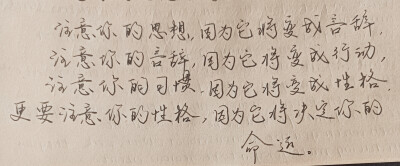 注意你的思想,因为它将变成言辞,
注意你的言辞,因为它将变成行动,
注意你的习惯.因为它将变成性格.
更要注意你的性格,因为它将决定你的
命运。